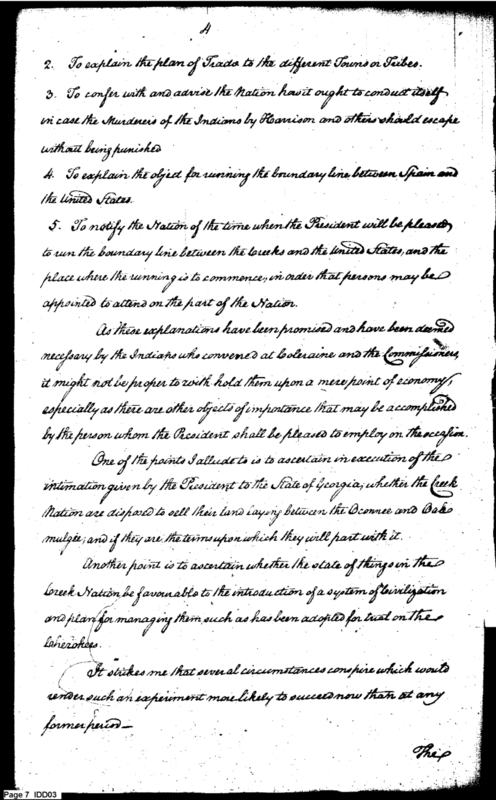 4
2. To explain the plan of Trade to the different Towns or Tribes.
3. To confer with and advise the Nation how it ought to conduct itself
in case the Murderers of the Indians by Harrison and others should escape
without being punished
4. To explain the object for running the boundary line between Spain and
the United States.
5. To notify the Nation of the time when the President will be pleased
to run the boundary line between the Creeks and the United States, and the
place where the running is to commence, in order that persons may be
appointed to attend on the part of the Nation.
As these explanations have been promised and have been deemed
necessary by the Indians who convened at Coleraine and the Commissioners,
it might not be proper to with hold them upon a mere point of economy,
especially as there are other objects of importance that may be accomplished
by the person whom the President shall be pleased to employ on the occasion.
One of the points I allude to is to ascertain in execution of the
intimation given by the President to the State of Georgia, whether the Creek
Nation are disposed to sell their land laying between the Oconnee and Oak-
mulgee; and if they are, the terms upon which they will part with it.
Another point is to ascertain whether the state of things in the
Creek Nation be favourable to the introduction of a system of Civilization
and plan for managing them, such as has been adopted for trial on the
Cherokees.
It strikes me that several circumstances conspire which would
render such an experiment more likely to succeed now than at any
former period—
The
Page 7 IDD03